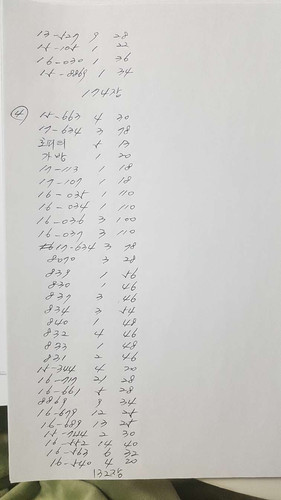 13-527 9 28
15-105 1 22
16-030 1 36
15-8869 1 34
174장
④ 15-663 4 30
17-634 3 78
로퍼터 5 13
가방 1 20
17-113 1 18
17-107 1 18
16-035 1 110
16-034 1 110
16-036 3 100
16-037 3 110
17-634 3 78
8070 3 28
839 1 56
830 1 46
837 3 46
834 3 54
840 1 48
832 4 46
833 1 48
831 2 46
15-344 4 20
16-717 21 28
16-661 5 28
8869 9 34
16-679 12 25
16-689 13 25
15-744 2 30
16-552 14 40
16-563 6 32
16-540 4 20
132장